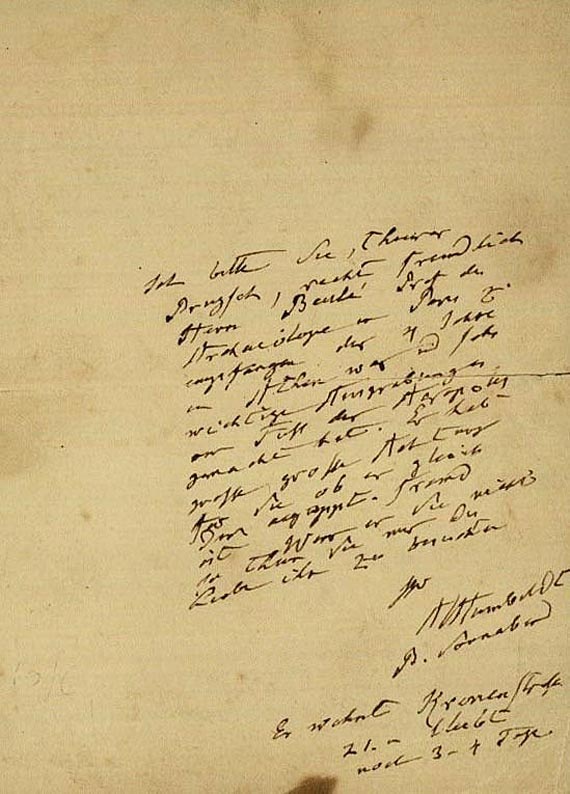 Ich bitte Sie, theurer
Brugsch, recht freundlich
Herrn Beulé Prof der
Archaeologie in Paris zu
empfangen der 4 Jahre
in Athen war und sehr
wichtige Ausgrabungen
am Fuss der Akropolis
gemacht hat. Er hat
grosse Achtung
für Sie ob er gleich
kein aegypt. Freund
ist. Wenn er Sie nicht
so thun Sie mir die
Liebe ihn zu besuchen
Ihr
AvHumboldt
B. Sonnabend
Er wohnt Kronenstrasse
21. u bleibt
noch 3-4 Tage.